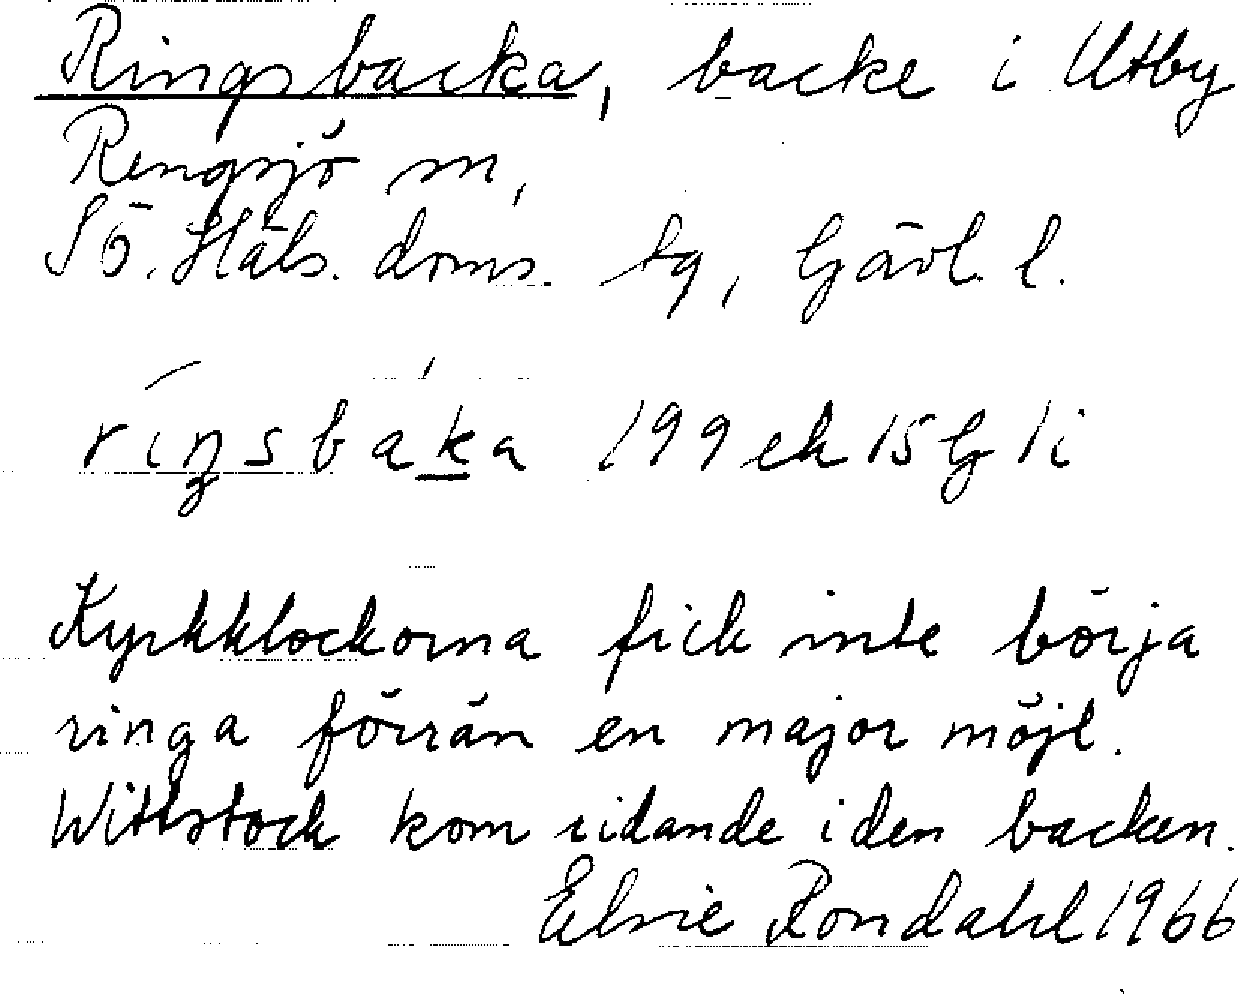 Ringsbacka, backe i Utby
Rengsjö sn,
Sö. Häls. doms. tg, Gävl. l.
riŋsbaka 199 ek 15 G 1i
Kyrkklockorna fick inte börja
ringa förrän en major möjl.
Wittstock kom ridande i den backen.
Elsie Rondahl 1966